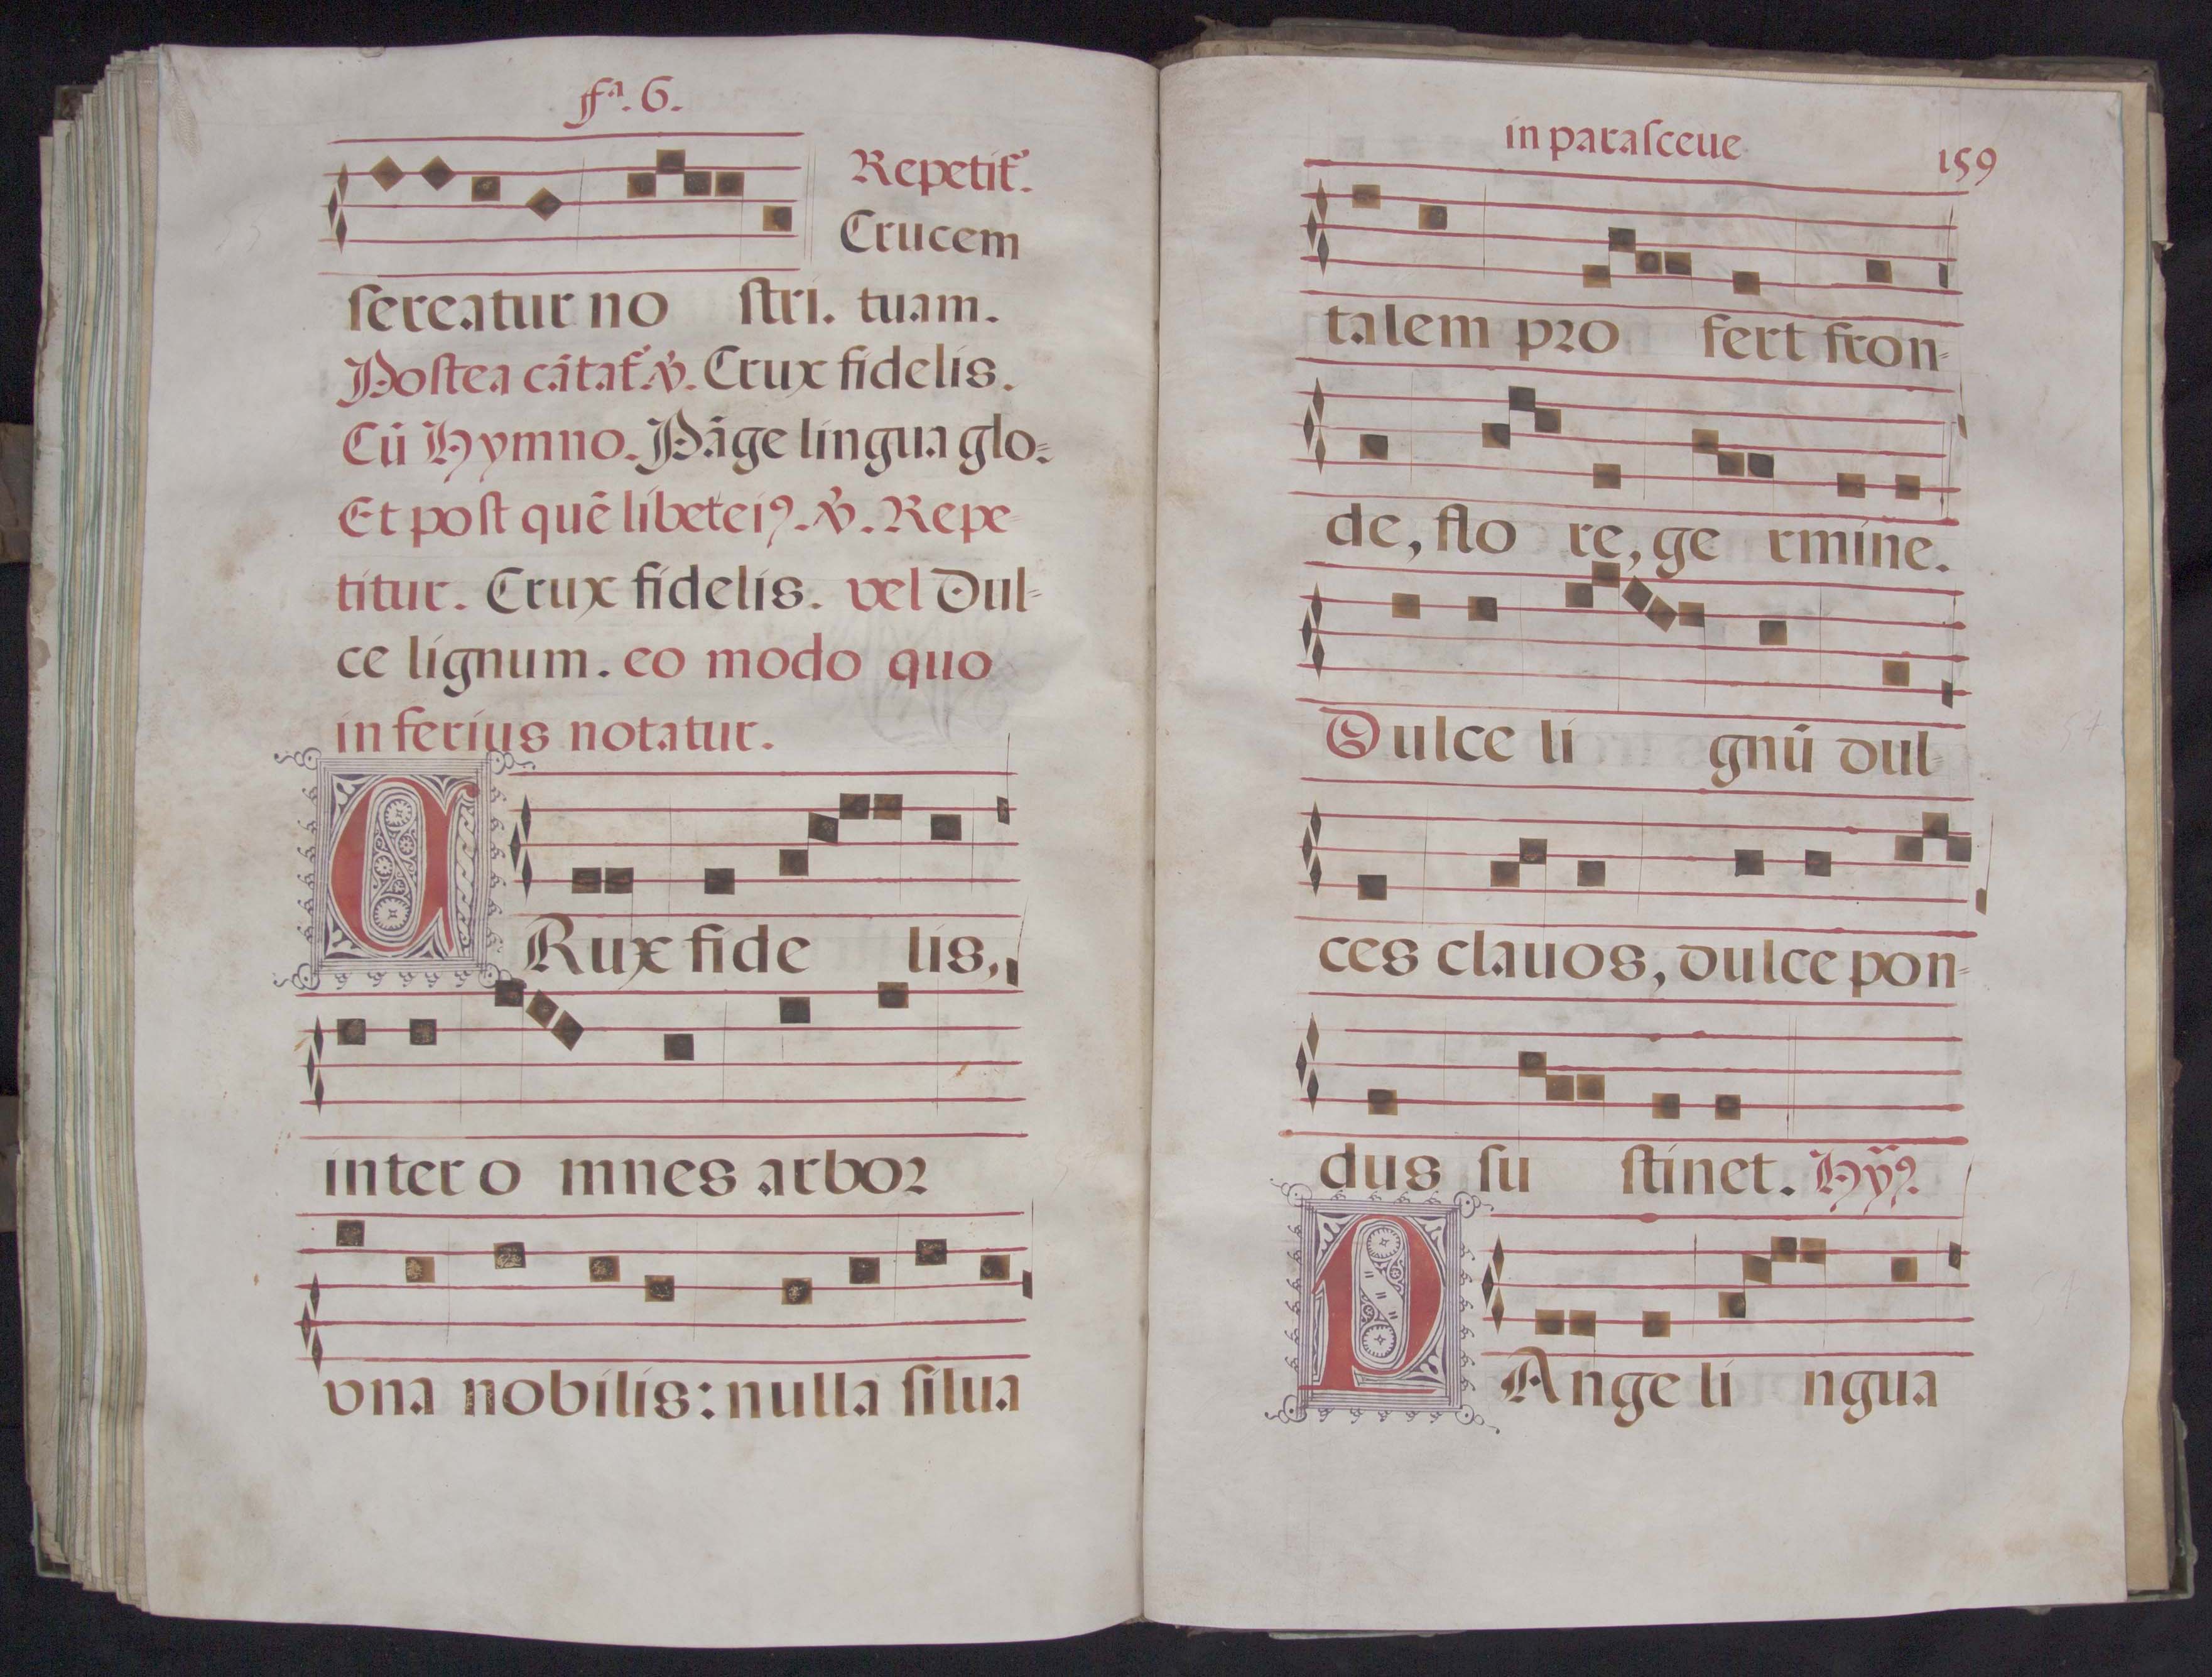 fª. 6.
Repetit̃.
Crucem
ſereatur no ſtri. tuam.
Poſtea cãtat̃. ℣. Crux fidelis.
Cũ Hymno. Pãge lingua glo-
Et poſt quẽ libet eiꝰ. ℣. Repe-
titur. Crux fidelis. vel Dul-
ce lignum. eo modo quo
inferius notatur.
CRux fide lis,
inter o mnes arboꝛ
vna nobilis: nulla ſilua
in paraſceue
159
talem pꝛo fert fron-
de, flo re, ge rmine.
Dulce li gnũ dul-
ces clauos, dulce pon-
dus ſu ſtinet. Hỹꝰ.
PAnge li ngua